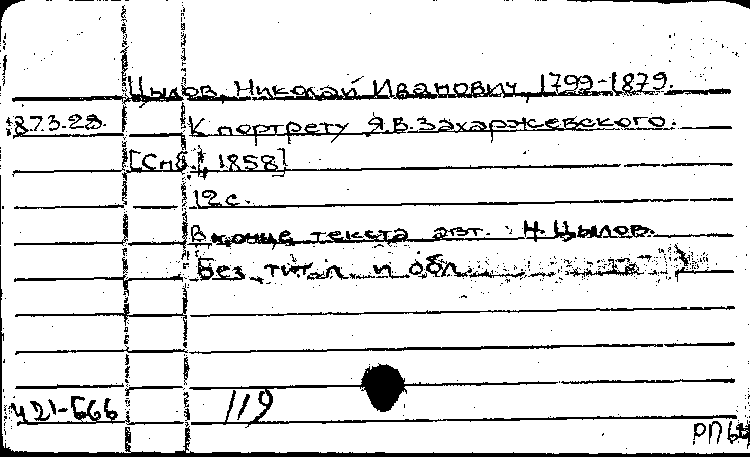 Цылов, Николай Иванович, 1799-1879.
18.73.2.23. К портрету Я.В.Захаржевского.
[Спб., 1858]
12 с.
В конце текста авт.: Н. Цылов.
Без тит. л. и обл.
Ч21-Б66 119
РП